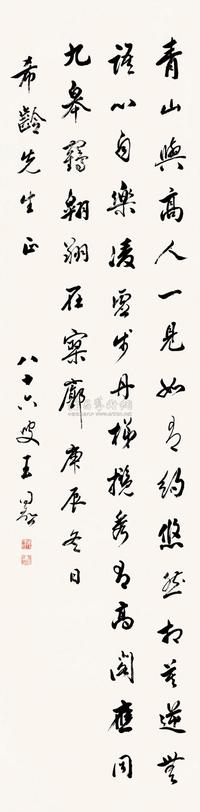 青山與高人一見如有約悠然相莫逆無
語心自樂凌虛步丹梯攬秀有高閣應同
九皋鶴翱翔在寥廓庚辰冬日
希齡先生正 八十六叟王同愈